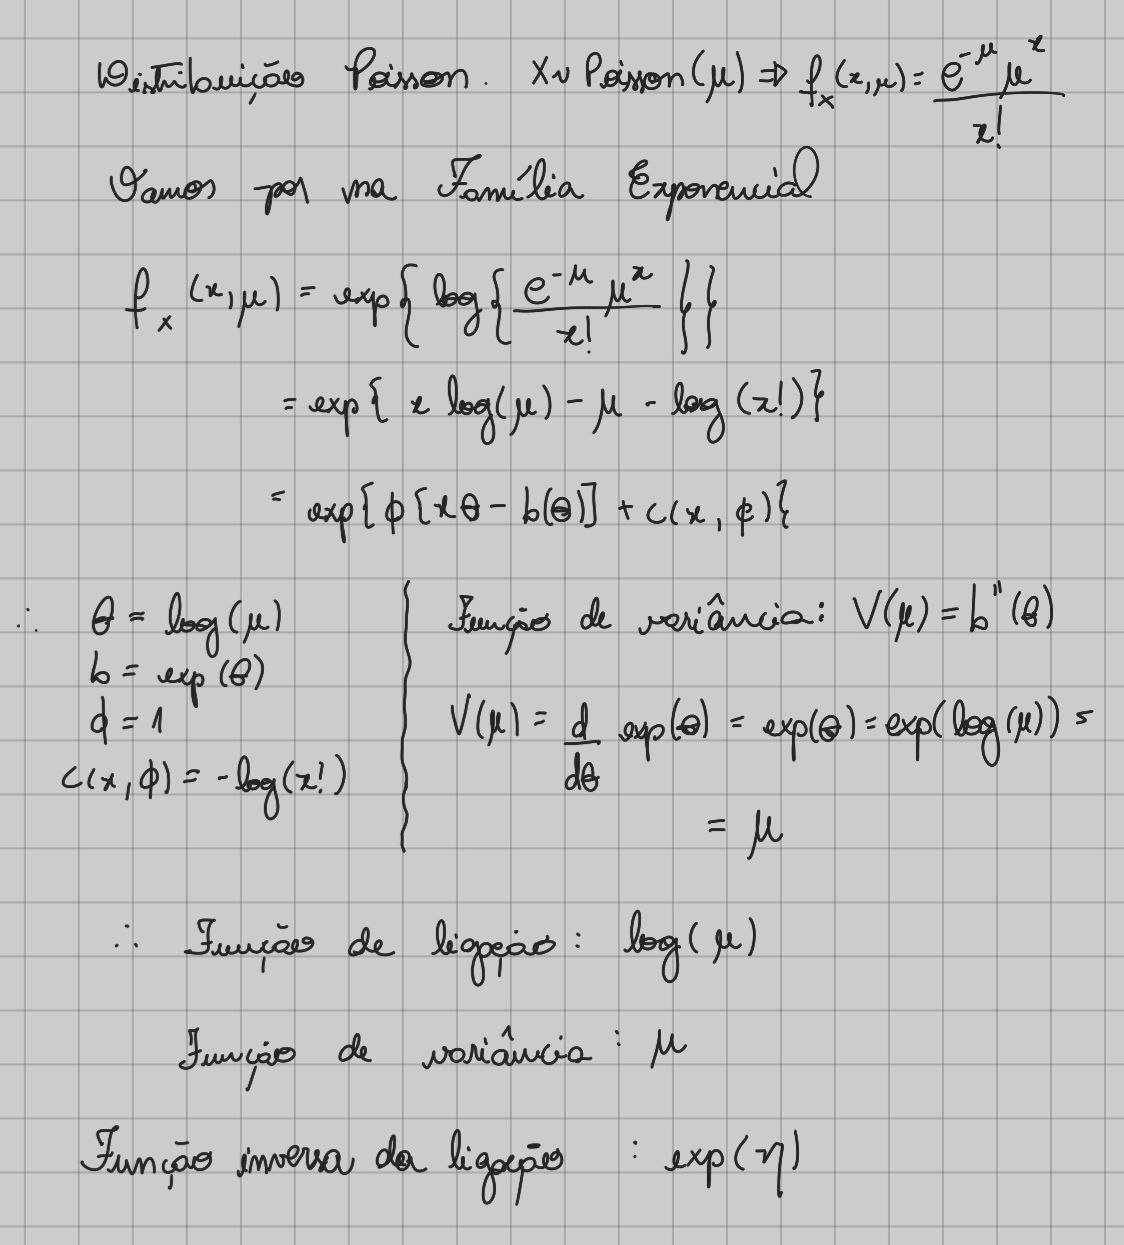 Distribuição Poisson. X ~ Poisson(μ) ⇒ f_x(x,μ) = e^{-μ} μ^x / x!
Vamos por na Família Exponencial
f_x(x,μ) = exp{ log{ e^{-μ} μ^x / x! } }
= exp{ x log(μ) - μ - log(x!) }
= exp{ φ[xθ - b(θ)] + c(x, φ) }
∴ θ = log(μ)
b = exp(θ)
φ = 1
c(x, φ) = -log(x!)
Função de variância: V(μ) = b''(θ)
V(μ) = d/dθ exp(θ) = exp(θ) = exp(log(μ)) =
= μ
∴ Função de ligação: log(μ)
Função de variância: μ
Função inversa da ligação: exp(η)